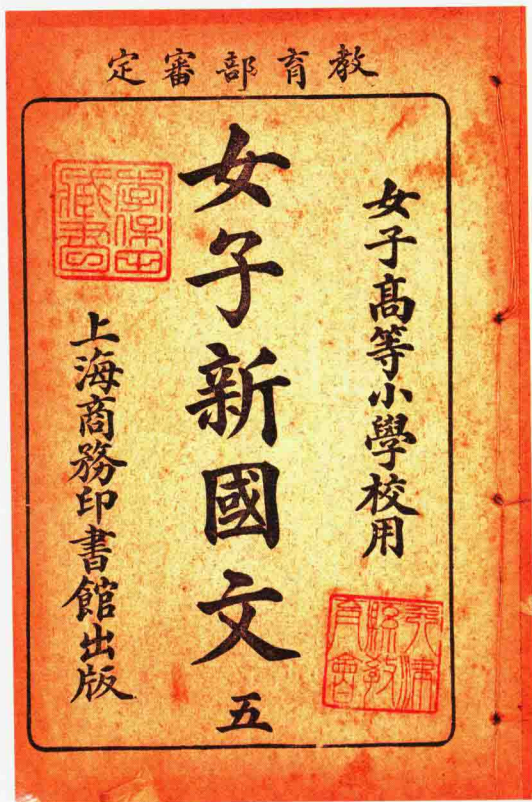 教育部審定
女子高等小學校用
女子新國文 五
上海商務印書館出版
天津縣教育會